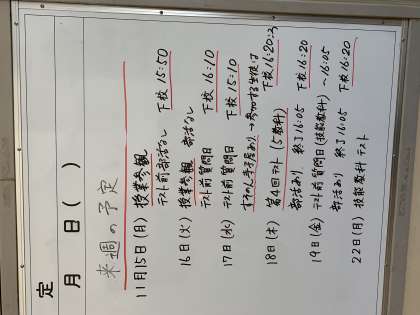 定
月 日( )
来週の予定
11月15日(月) 授業参観 下校 15:50
テスト前部活なし
16日(火) 授業参観 部活なし
テスト前質問日 下校 16:10
17日(水) テスト前質問日 下校 15:10
あり→参加する生徒は 下校 16:20
18日(木) 第4回テスト(5教科)
部活あり 終了16:05 下校 16:20
19日(金) テスト前質問日(技能教科) ~16:05
部活あり 終了16:05 下校 16:20
22日(月) 技能教科テスト